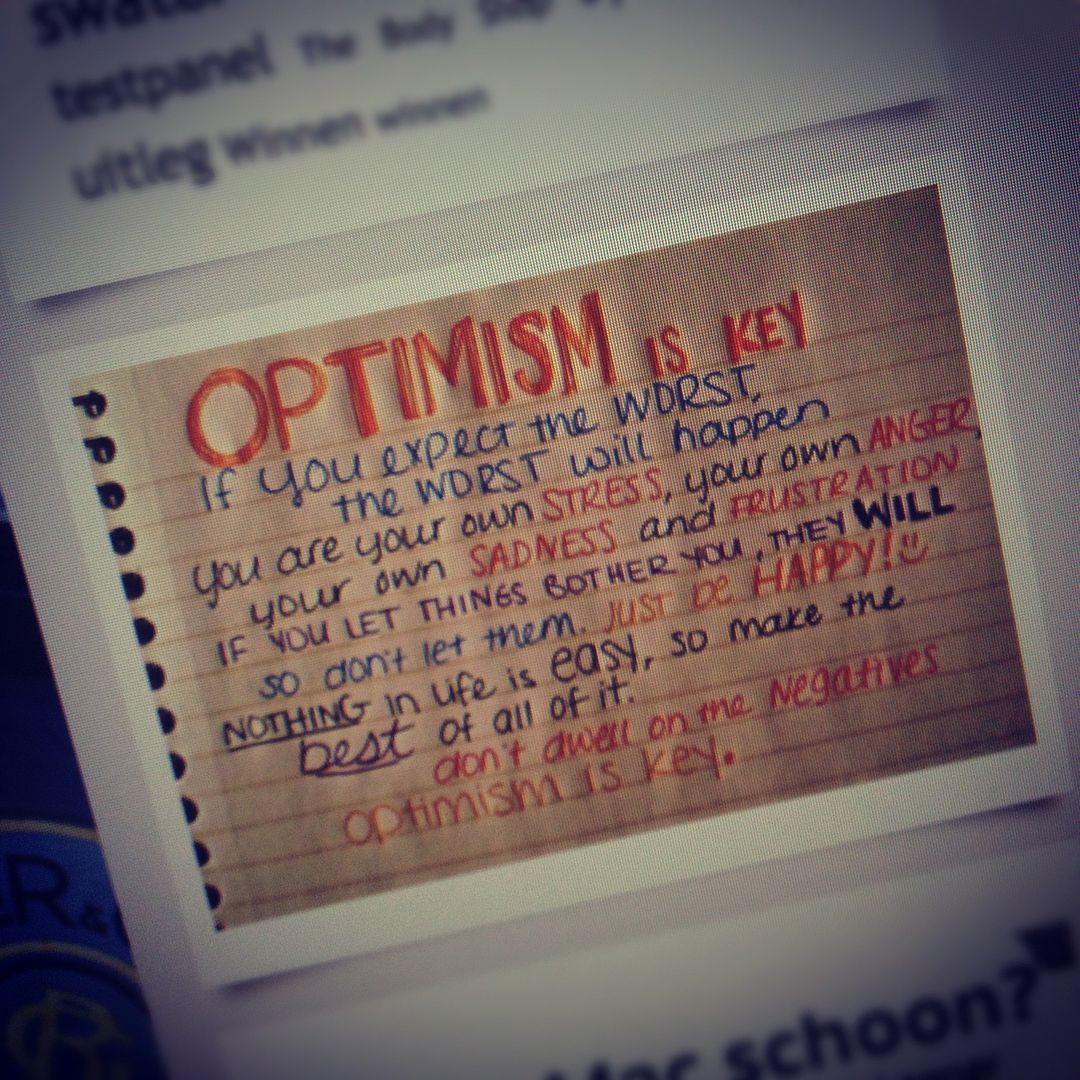 testpanel The Body
uitleg Winnen winnen
OPTIMISM IS KEY
If you expect the WORST,
the WORST will happen
you are your own STRESS, your own ANGER,
your own SADNESS and FRUSTRATION
IF YOU LET THINGS BOTHER YOU, THEY WILL
so don't let them. JUST BE HAPPY!
NOTHING in life is easy, so make the
best of all of it.
don't dwell on the Negatives
optimism is key.
schoon?